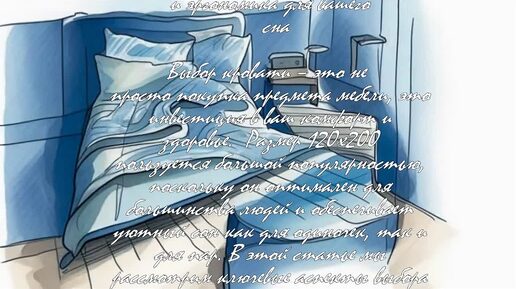 и эргономика для вашего
сна
Выбор кровати – это не
просто покупка предмета мебели, это
инвестиция в ваш комфорт и
здоровье. Размер 120х200
пользуется большой популярностью,
поскольку он оптимален для
большинства людей и обеспечивает
уютный сон как для одиночек, так и
для пар. В этой статье мы
рассмотрим ключевые аспекты выбора